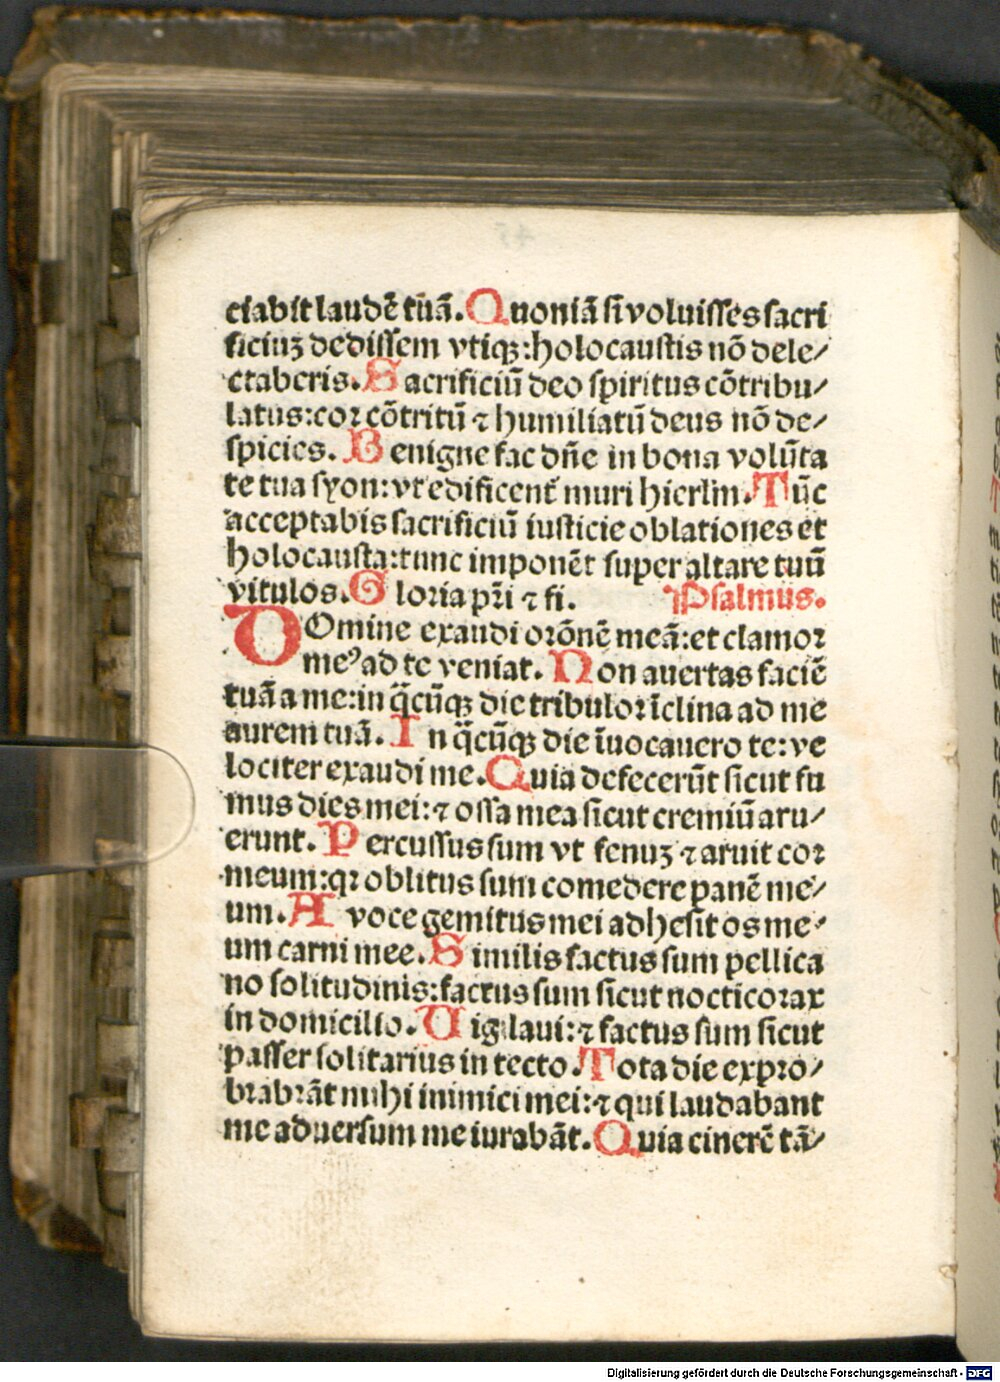 ciabit laudē tuā. Quoniā si voluisses sacri
ficiuꝫ dedissem vtiqꝫ: holocaustis nō dele/
ctaberis. Sacrificiū deo spiritus cōtribu/
latus: cor cōtritū ⁊ humiliatū deus nō de/
spicies. Benigne fac dn̄e in bona volūta
te tua syon: vt edificent᷑ muri hierlm̄. Tūc
acceptabis sacrificiū iusticie oblationes et
holocausta: tunc imponēt super altare tuū
vitulos. Gloria pr̄i ⁊ fi. Psalmus.
DOmine exaudi orōnē meā: et clamor
meꝰ ad te veniat. Non auertas faciē
tuā a me: in q̄cūqꝫ die tribulor īclina ad me
aurem tuā. In q̄cūqꝫ die īuocauero te: ve
lociter exaudi me. Quia defecerūt sicut fu
mus dies mei: ⁊ ossa mea sicut cremiū aru/
erunt. Percussus sum vt fenuꝫ ⁊ aruit cor
meum: qꝛ oblitus sum comedere panē me/
um. A voce gemitus mei adhesit os me/
um carni mee. Similis factus sum pellica
no solitudinis: factus sum sicut nocticorax
in domicilio. Uigilaui: ⁊ factus sum sicut
passer solitarius in tecto. Tota die expro/
brabrāt mihi inimici mei: ⁊ qui laudabant
me aduersum me iurabāt. Quia cinerē tā/
Digitalisierung gefördert durch die Deutsche Forschungsgemeinschaft - DFG